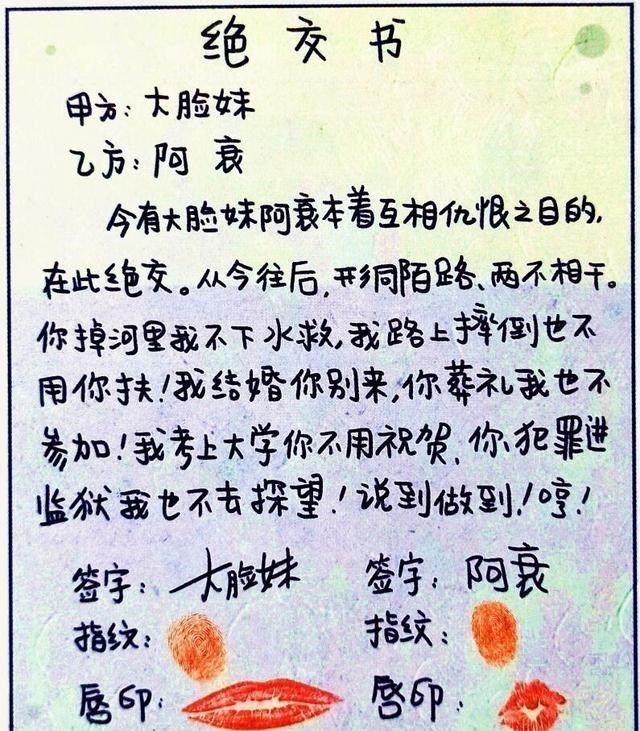 绝交书
甲方：大脸妹
乙方：阿衰
今有大脸妹阿衰本着互相仇恨之目的，
在此绝交。从今往后，形同陌路、两不相干。
你掉河里我不下水救，我路上摔倒也不
用你扶！我结婚你别来，你葬礼我也不
参加！我考上大学你不用祝贺，你犯罪进
监狱我也不去探望！说到做到！哼！
签字：大脸妹 签字：阿衰
指纹： 指纹：
唇印： 唇印：